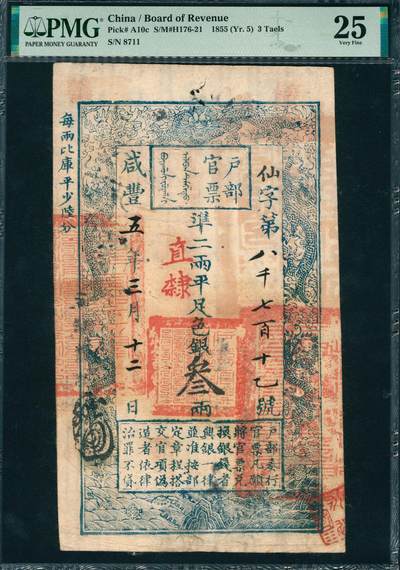 PMG
PAPER MONEY GUARANTY
China / Board of Revenue
Pick# A10c S/M#H176-21 1855 (Yr. 5) 3 Taels
S/N 8711
25
Very Fine
每兩比庫平少陸分
戶部
官票
仙字第八千七百十乙號
準二兩平足色銀叁兩
直隸
咸豐五年三月十二日
戶部奏行
官票凡願
將官票兌
換銀錢者
與銀一律
並准按部
定章程搭
交官項偽
造者依律
治罪不貸